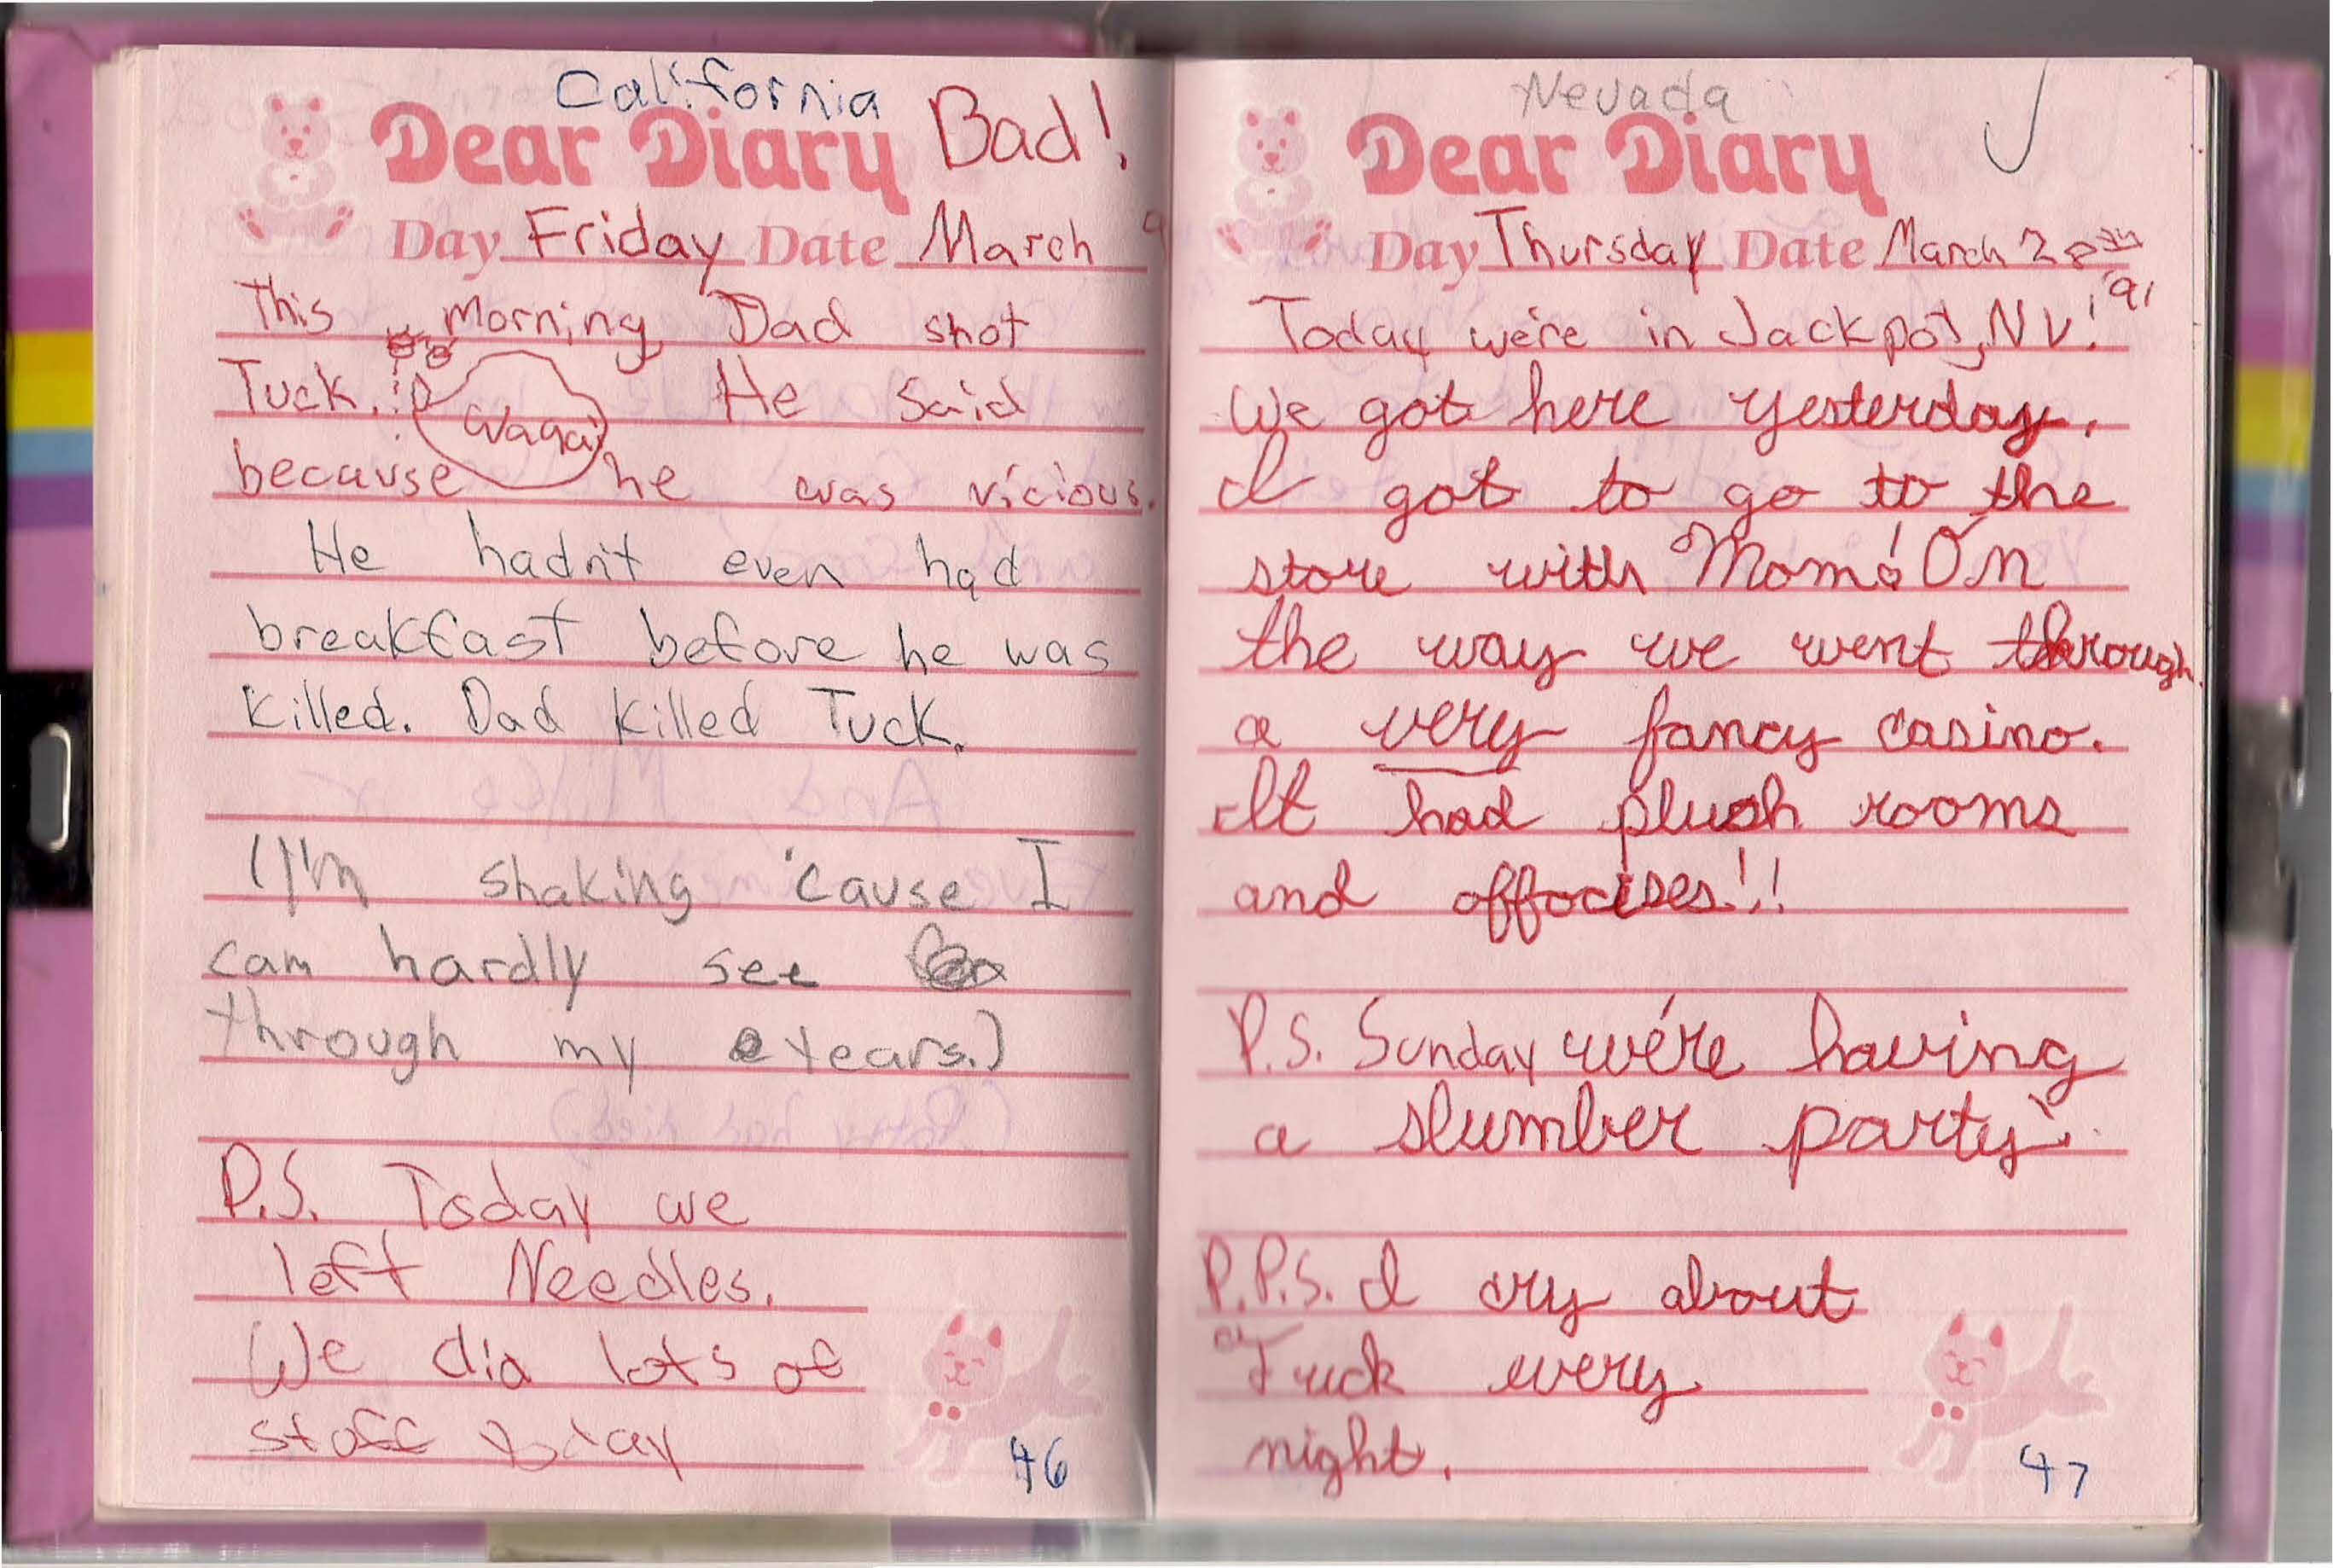 California
Dear Diary Bad!
Day Friday Date March 9
This morning, Dad shot
Tuck. He said
because he was vicious.
He hadn't even had
breakfast before he was
killed. Dad killed Tuck.
(I'm shaking 'cause I
can hardly see
through my tears.)
P.S. Today we
left Needles.
We did lots of
stoff today
46
Nevada
Dear Diary
Day Thursday Date March 28
'91
Today we're in Jackpot, NV!
We got here yesterday.
I got to go to the
store with Mom! On
the way we went through
a very fancy casino.
It had plush rooms
and offocises!!
P.S. Sunday we're having
a slumber party!
P.P.S. I cry about
Tuck every
night.
47